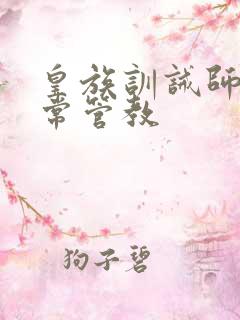 皇族訓誡師
常管教
狗子碧